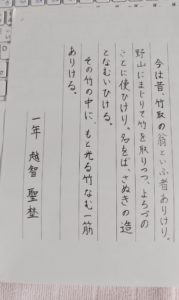 今は昔、竹取の翁といふ者ありけり。
野山にまじりて竹を取りつつ、よろづの
ことに使ひけり。名をば、さぬきの造
となむいひける。
その竹の中に、もと光る竹なむ一筋
ありける。
一年 越智 聖